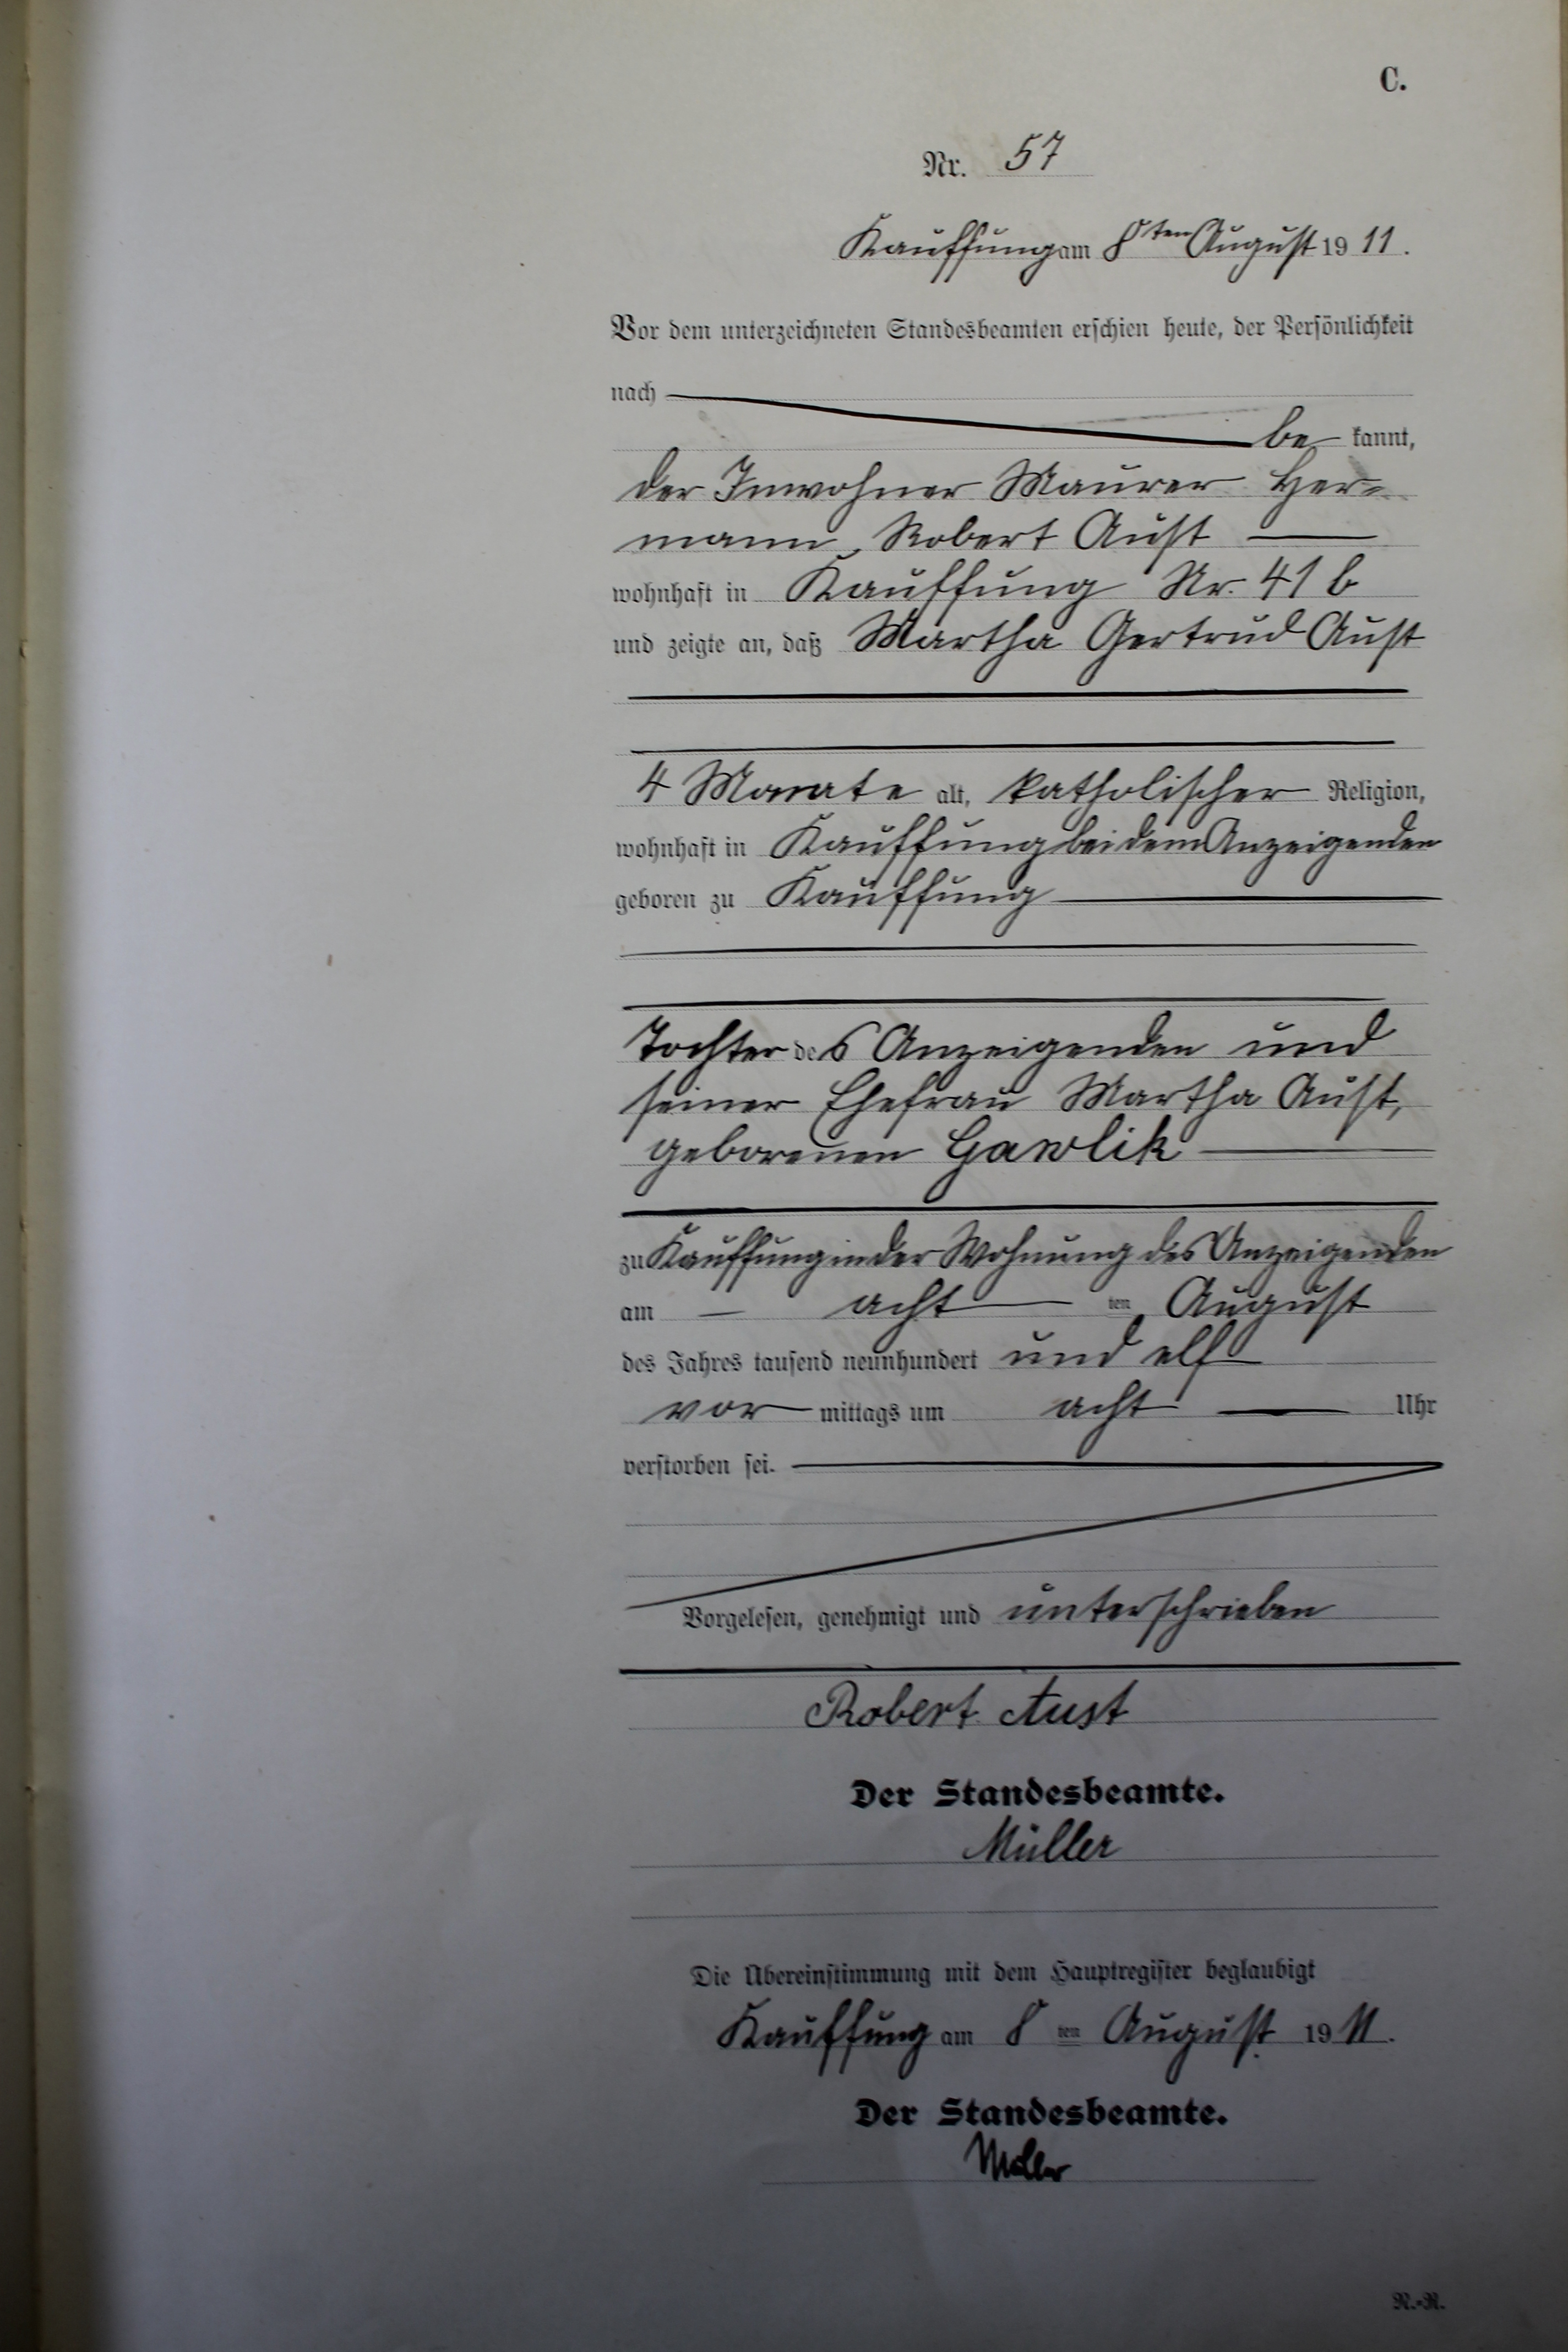 C.
Nr. 57
Kauffung am 8ten August 1911.
Vor dem unterzeichneten Standesbeamten erschien heute, der Persönlichkeit
nach
be kannt,
der Inwohner Maurer Her-
mann Robert Aust
wohnhaft in Kauffung Nr. 41 b
und zeigte an, daß Martha Gertrud Aust
4 Monate alt, katholischer Religion,
wohnhaft in Kauffung bei dem Anzeigenden
geboren zu Kauffung
Tochter des Anzeigenden und
seiner Ehefrau Martha Aust,
geborenen Gawlik
zu Kauffung in der Wohnung des Anzeigenden
am acht ten August
des Jahres tausend neunhundert und elf
vor mittags um acht Uhr
verstorben sei.
Vorgelesen, genehmigt und unterschrieben
Robert Aust
Der Standesbeamte.
Müller
Die Übereinstimmung mit dem Hauptregister beglaubigt
Kauffung am 8 ten August 1911.
Der Standesbeamte.
Müller
N.-R.